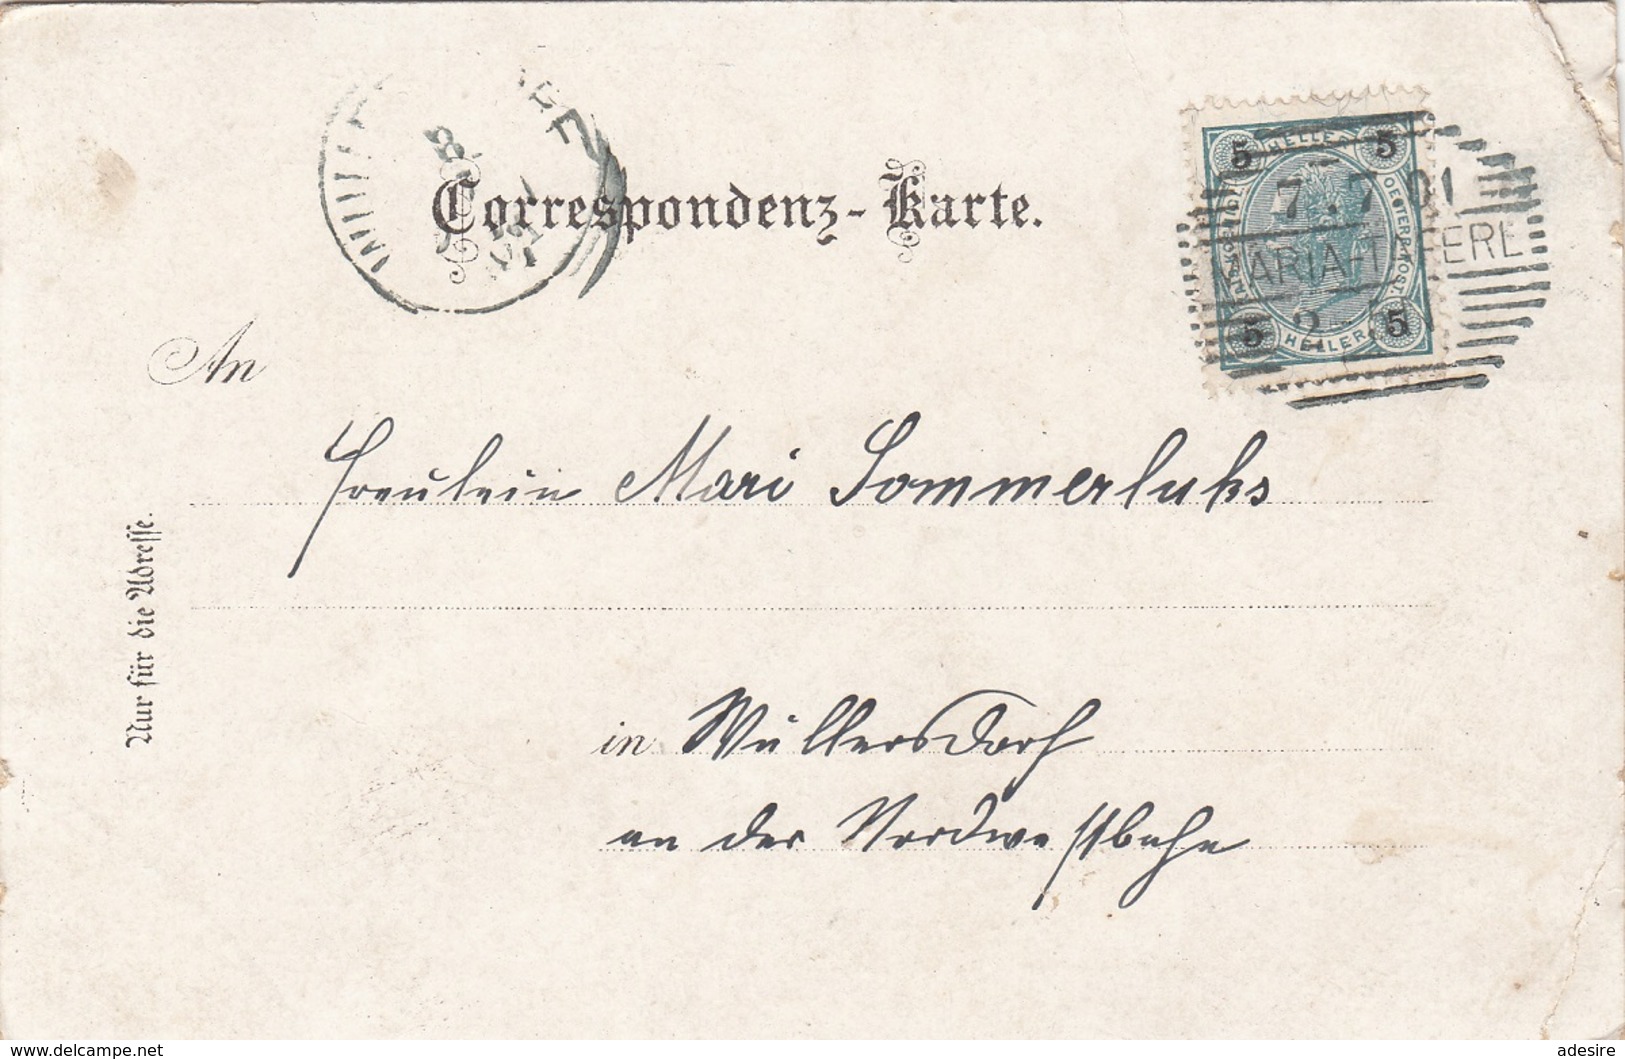 Correspondenz-Karte.
5 HELLER 5
7.7 01
5 HELLER 5
An
Fräulein Mari Sommerluks
Nur für die Adresse.
in Wullersdorf
an der Nordwestbahn
delcampe.net
adesire